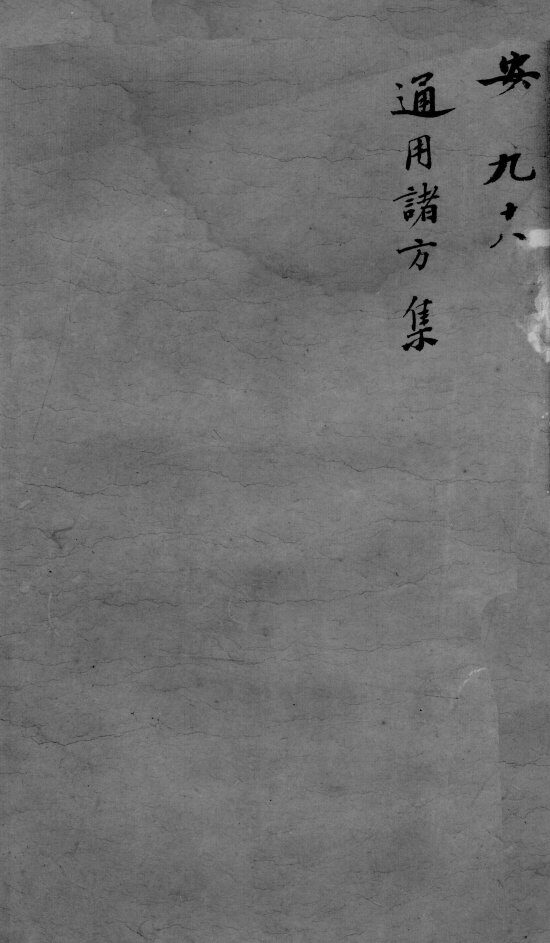 安 九十六
通用諸方 集